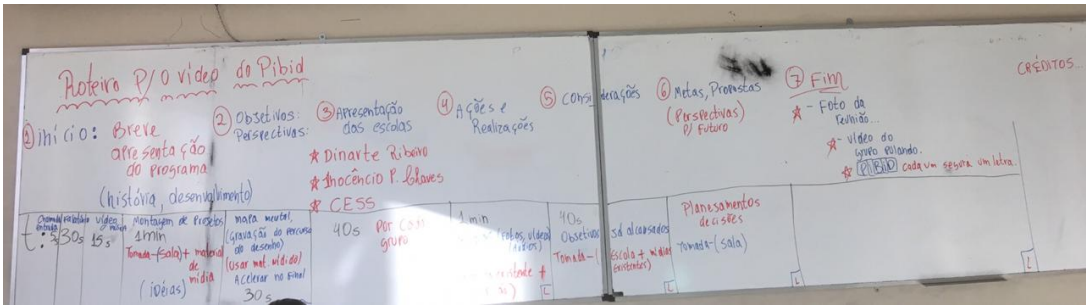 Roteiro P/ O vídeo do Pibid
① início: Breve
apresentação
do programa
(história, desenvolvimento)
② Objetivos:
Perspectivas:
③ Apresentação
das escolas
★ Dinarte Ribeiro
★ Inocêncio P. Chaves
★ CESS
④ Ações e
Realizações
⑤ Considerações
⑥ Metas, Propostas
(Perspectivas)
P/ Futuro
⑦ Fim
★ - Foto da
reunião...
★ - vídeo do
grupo pulando.
★ PIBID cada um segura um letra.
CRÉDITOS...
t:
30s
vídeo
15s
Montagem de Projetos
1 min
Tomada-(sala) + material
de
mídia
(idéias)
mapa mental,
(gravação do percurso
do desenho)
(usar mat. mídia)
Acelerar no final
30s
40s Por cada
grupo
1 min
40s
Objetivos já alcançados
Tomada-
Escola + mídias
existentes)
Planejamentos
decisões
Tomada-(sala)